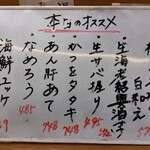 本日のオススメ
白和え
生海老紹興酒漬
生サバ握り
かつおタタキ
748
あん肝あて
748
なめろう
485
海鮮ユッケ